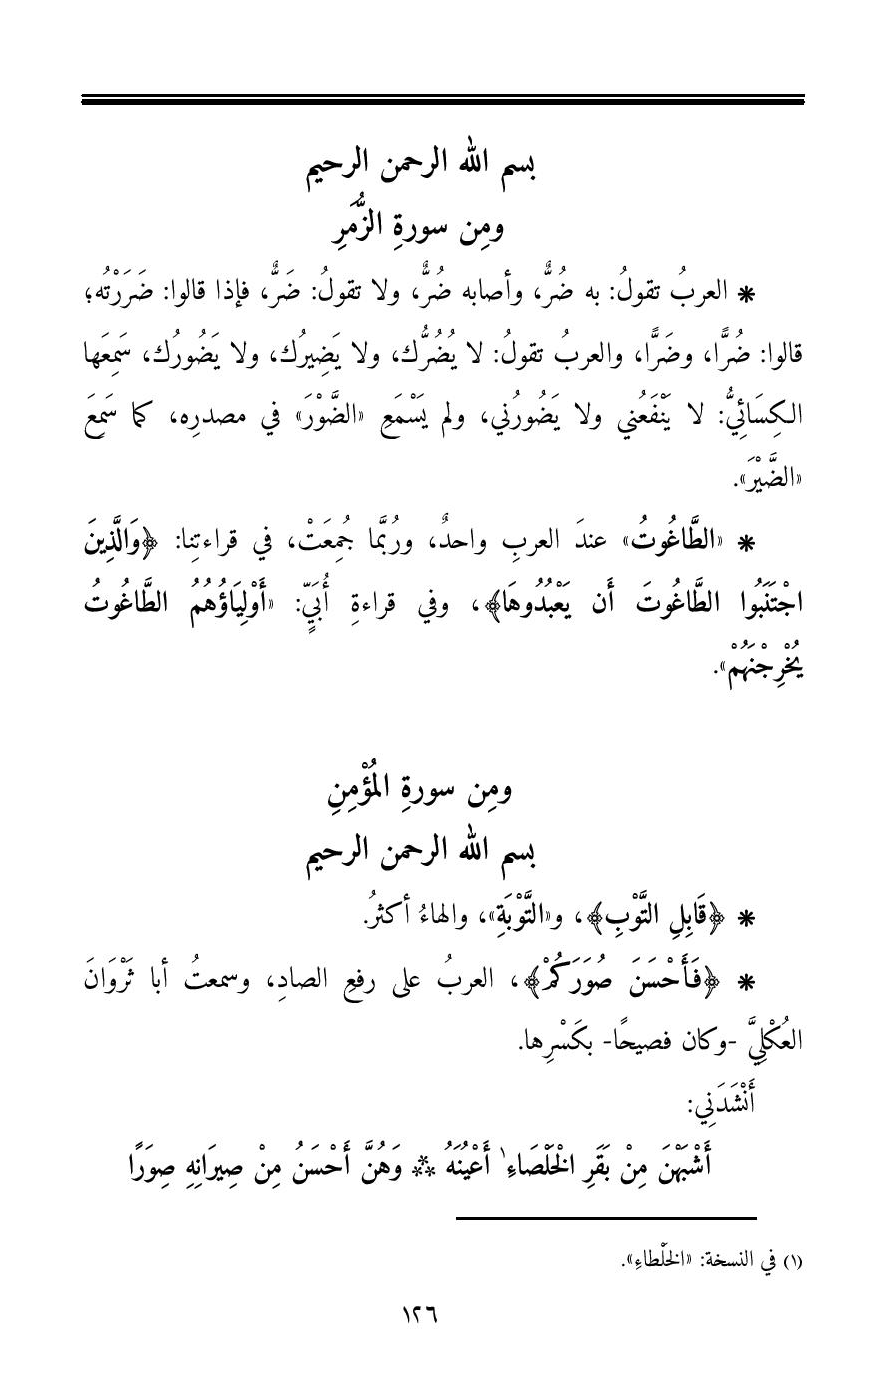 بسم الله الرحمن الرحيم
ومِن سورةِ الزُّمَرِ
* العربُ تقولُ: به ضُرٌّ، وأصابه ضُرٌّ، ولا تقولُ: ضَرٌّ، فإذا قالوا: ضَرَرْتُه؛
قالوا: ضُرًّا، وضَرًّا، والعربُ تقولُ: لا يُضُرُّك، ولا يَضِيرُك، ولا يَضُورُك، سَمِعَها
الكِسَائِيُّ: لا يَنْفَعُني ولا يَضُورُني، ولم يَسْمَعِ «الضَّوْرَ» في مصدرِه، كما سَمِعَ
«الضَّيْرَ».
* «الطَّاغُوتُ» عندَ العربِ واحدٌ، ورُبَّما جُمِعَتْ، في قراءتِنا: ﴿وَالَّذِينَ
اجْتَنَبُوا الطَّاغُوتَ أَن يَعْبُدُوهَا﴾، وفي قراءةِ أُبَيٍّ: «أَوْلِيَاؤُهُمُ الطَّاغُوتُ
يُخْرِجْنَهُمْ».
ومِن سورةِ المُؤْمِنِ
بسم الله الرحمن الرحيم
* ﴿قَابِلِ التَّوْبِ﴾، و«التَّوْبَةِ»، والهاءُ أكثرُ.
* ﴿فَأَحْسَنَ صُوَرَكُمْ﴾، العربُ على رفعِ الصادِ، وسمعتُ أبا ثَرْوَانَ
العُكْلِيَّ -وكان فصيحًا- بكَسْرِها.
أَنْشَدَنِي:
أَشْبَهْنَ مِنْ بَقَرِ الْخَلْصَاءِ١ أَعْيُنَهُ ** وَهُنَّ أَحْسَنُ مِنْ صِيرَانِهِ صِوَرًا
(١) في النسخة: «الخَلْطاءِ».
١٢٦